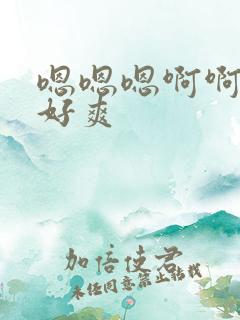 嗯嗯嗯啊啊
好爽
加倍使君
未经同意禁止转载